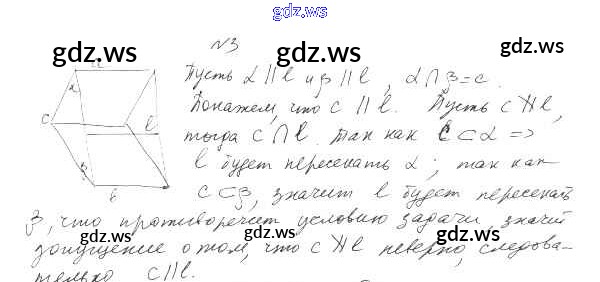 gdz.ws
№3
gdz.ws gdz.ws
Пусть α || l и β || l, α ∩ β = c.
Покажем, что c || l. Пусть c ∦ l,
тогда c ∩ l. Так как c ⊂ α =>
l будет пересекать α; так как
c ⊂ β, значит l будет пересекать
β, что противоречит условию задачи, значит
допущение о том, что c ∦ l неверно, следова-
тельно c || l.
gdz.ws gdz.ws
a
c
l
β
b
gdz.ws gdz.ws